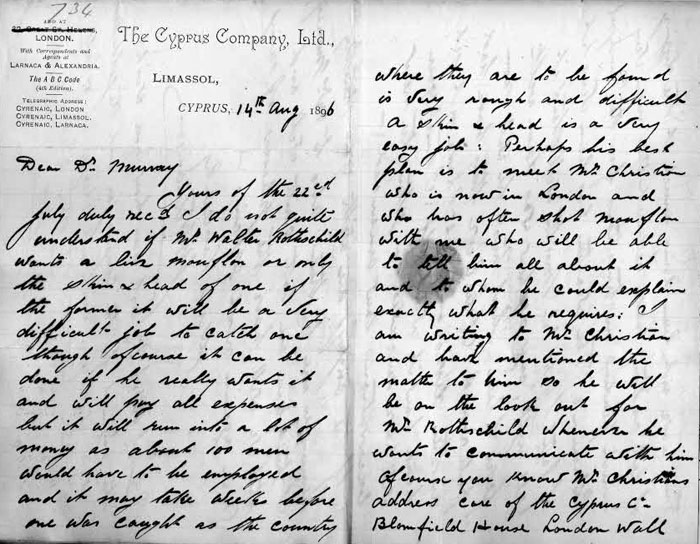 734
AND AT
22 GREAT ST. HELENS,
LONDON.
With Correspondents and
Agents at
LARNACA & ALEXANDRIA.
The A B C Code
(4th Edition).
TELEGRAPHIC ADDRESS:
CYRENAIC, LONDON
CYRENAIC, LIMASSOL.
CYRENAIC, LARNACA.
The Cyprus Company, Ltd.,
LIMASSOL,
CYPRUS, 14th Aug 1896
Dear Dr Murray
Yours of the 22nd
July duly recd I do not quite
understand if Mr. Walter Rothschild
wants a live mouflon or only
the skin & head of one if
the former it will be a very
difficult job to catch one
though ofcourse it can be
done if he really wants it
and will pay all expenses
but it will run into a lot of
money as about 100 men
would have to be employed
and it may take weeks before
one was caught as the country
where they are to be found
is very rough and difficult
a skin & head is a very
easy job: Perhaps his best
plan is to meet Mr. Christian
who is now in London and
who has often shot mouflon
with me who will be able
to tell him all about it
and to whom he could explain
exactly what he requires: I
am writing to Mr Christian
and have mentioned the
matter to him so he will
be on the look out for
Mr. Rothschild whenever he
wants to communicate with him
Ofcourse you know Mr. Christian's
address care of the Cyprus Co
Blomfield House London Wall